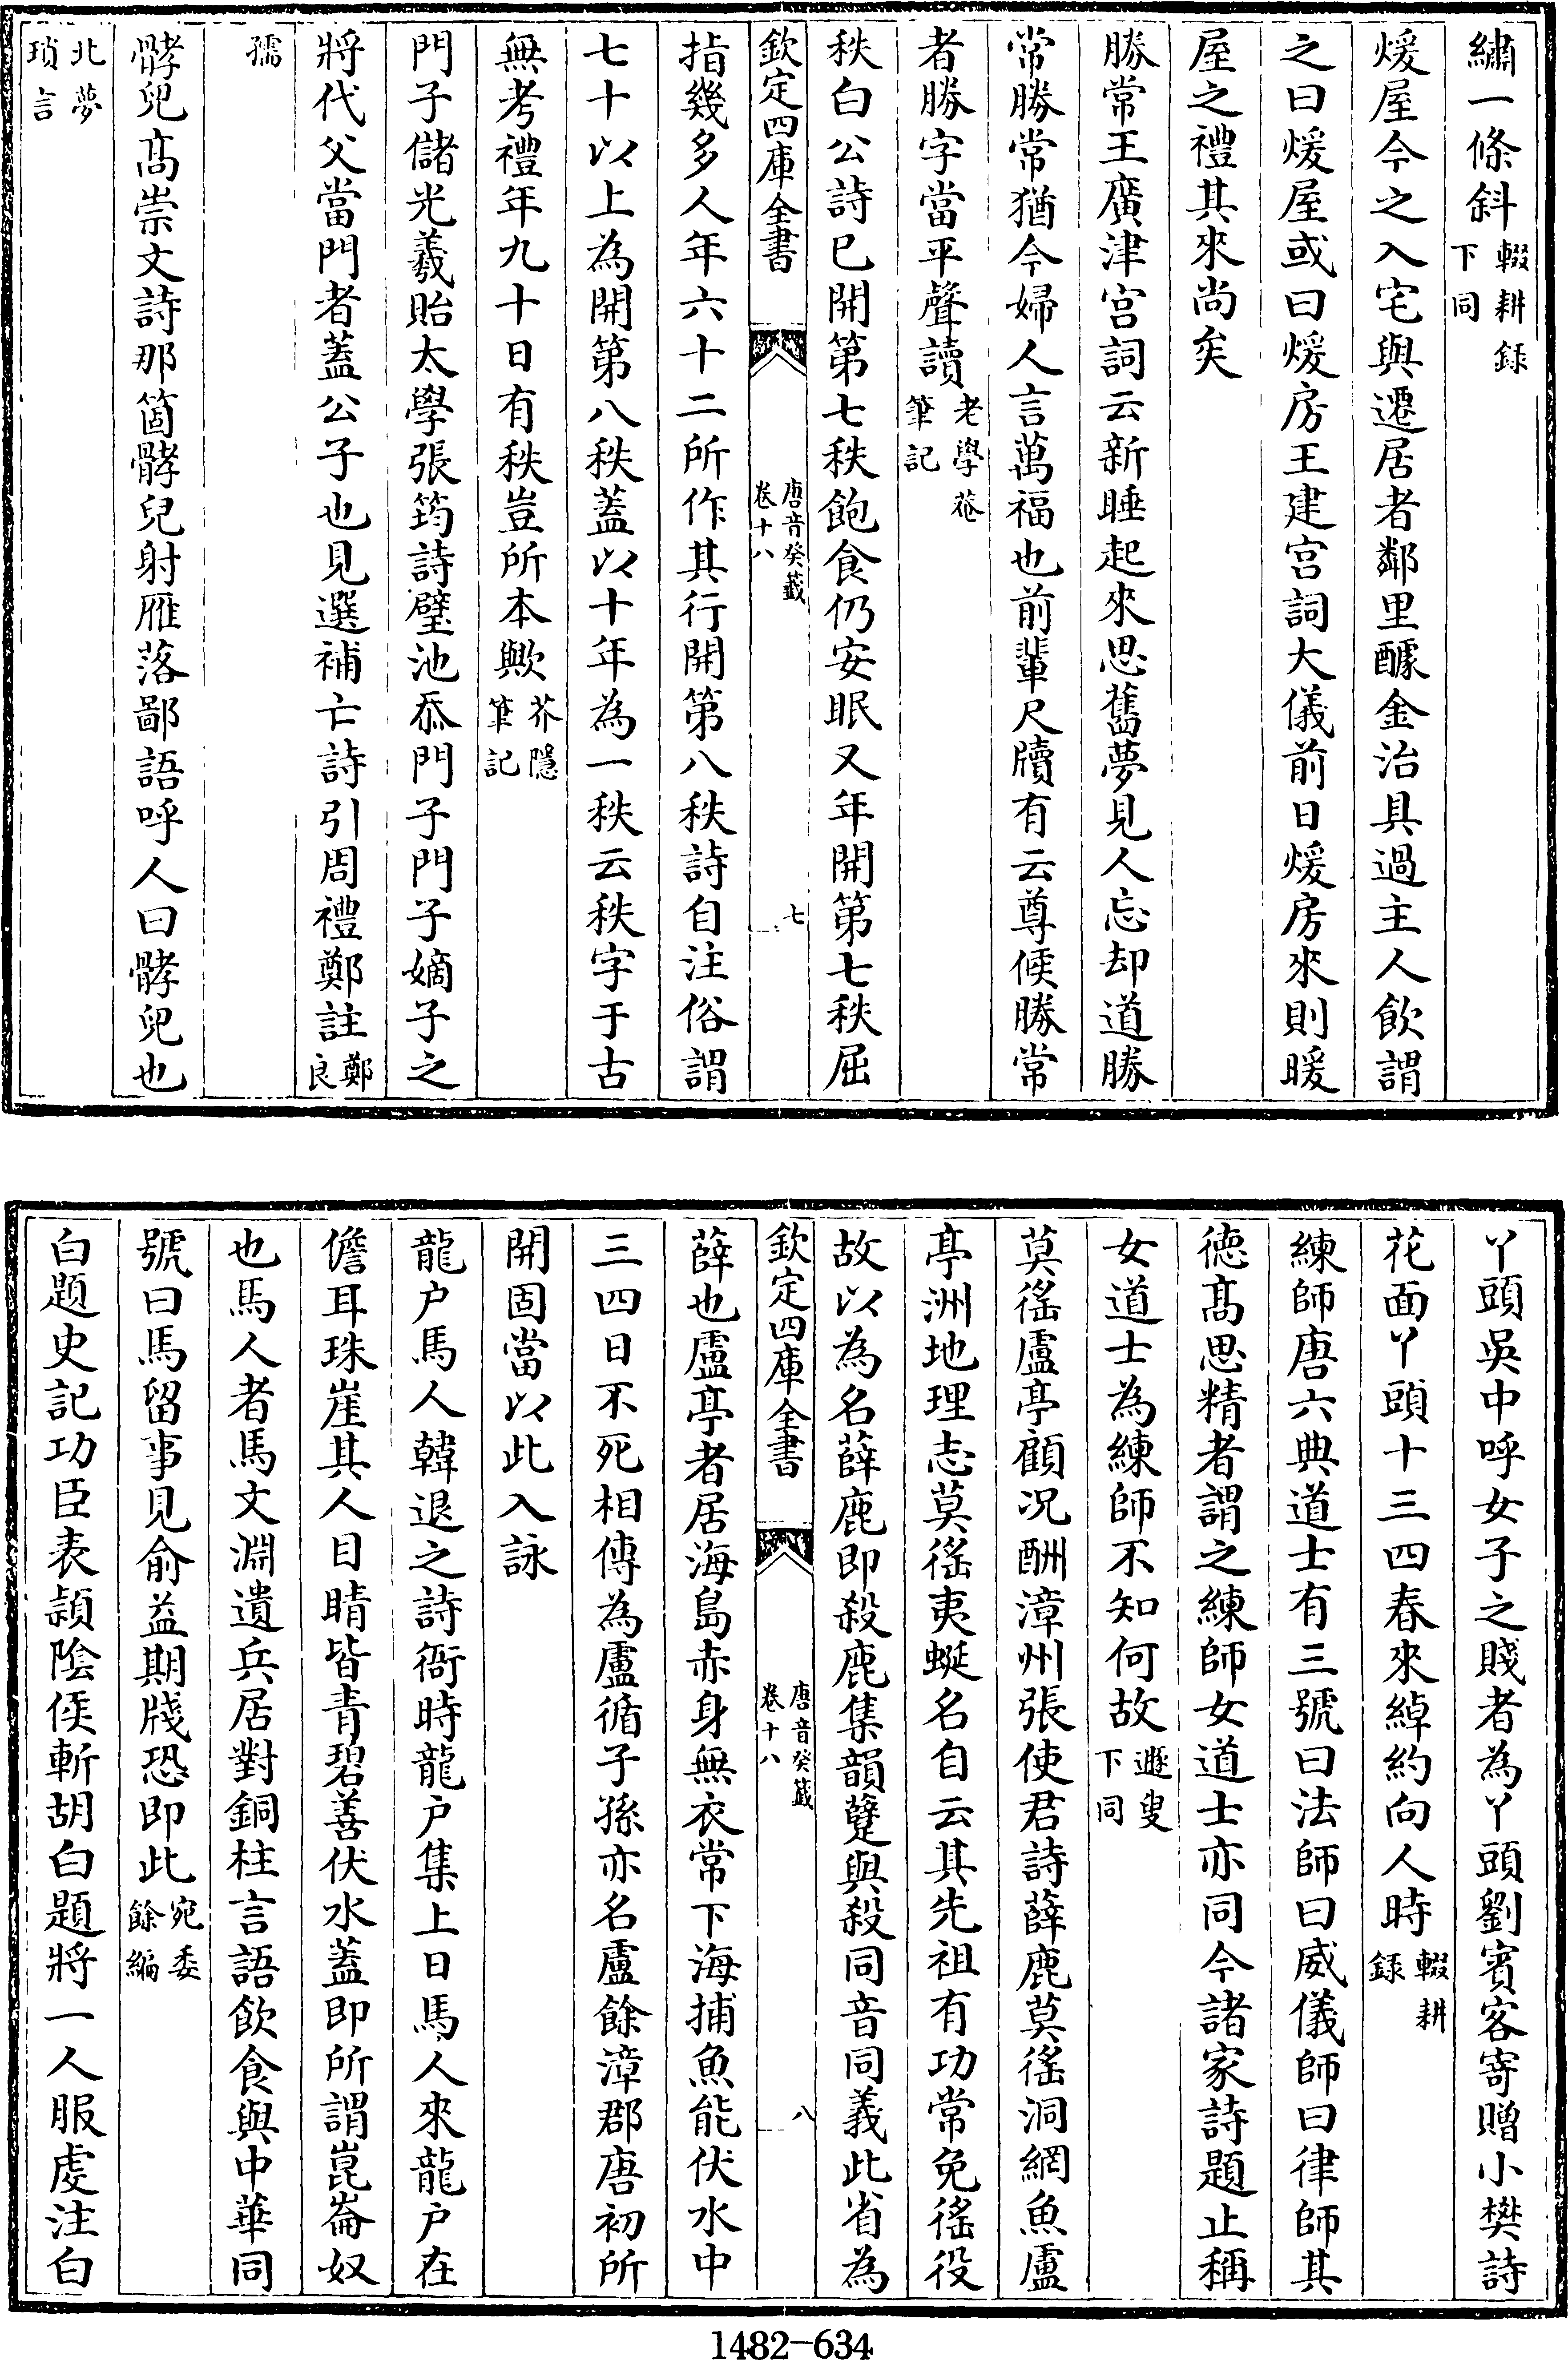 繡一條斜輟耕錄下同
煖屋今之入宅與遷居者鄰里醵金治具過主人飲謂
之曰煖屋或曰煖房王建宫詞大儀前日煖房來則暖
屋之禮其來尚矣
勝常王廣津宫詞云新睡起來思舊夢見人忘却道勝
常勝常猶今婦人言萬福也前輩尺牘有云尊候勝常
者勝字當平聲讀老學菴筆記
秩白公詩已開第七秩飽食仍安眠又年開第七秩屈
欽定四庫全書 唐音癸籤卷十八 七
指幾多人年六十二所作其行開第八秩詩自注俗謂
七十以上為開第八秩蓋以十年為一秩云秩字于古
無考禮年九十日有秩豈所本歟芥隱筆記
門子儲光羲貽太學張筠詩璧池忝門子門子嫡子之
將代父當門者蓋公子也見選補亡詩引周禮鄭註鄭良
孺
髇兒高崇文詩那箇髇兒射雁落鄙語呼人曰髇兒也
北夢瑣言
丫頭吳中呼女子之賤者為丫頭劉賓客寄贈小樊詩
花面丫頭十三四春來綽約向人時輟耕錄
練師唐六典道士有三號曰法師曰威儀師曰律師其
徳髙思精者謂之練師女道士亦同今諸家詩題止稱
女道士為練師不知何故遯叟下同
莫徭盧亭顧况酬漳州張使君詩薛鹿莫徭洞網魚盧
亭洲地理志莫徭夷蜒名自云其先祖有功常免徭役
故以為名薛鹿即殺鹿集韻躠與殺同音同義此省為
欽定四庫全書 唐音癸籤卷十八 八
薛也盧亭者居海島赤身無衣常下海捕魚能伏水中
三四日不死相傳為盧循子孫亦名盧餘漳郡唐初所
開固當以此入詠
龍户馬人韓退之詩衙時龍户集上日馬人來龍户在
儋耳珠崖其人目睛皆青碧善伏水蓋即所謂崑崙奴
也馬人者馬文淵遺兵居對銅柱言語飲食與中華同
號曰馬留事見俞益期牋恐即此宛委餘編
白題史記功臣表潁陰侯斬胡白題將一人服虔注白
1482-634